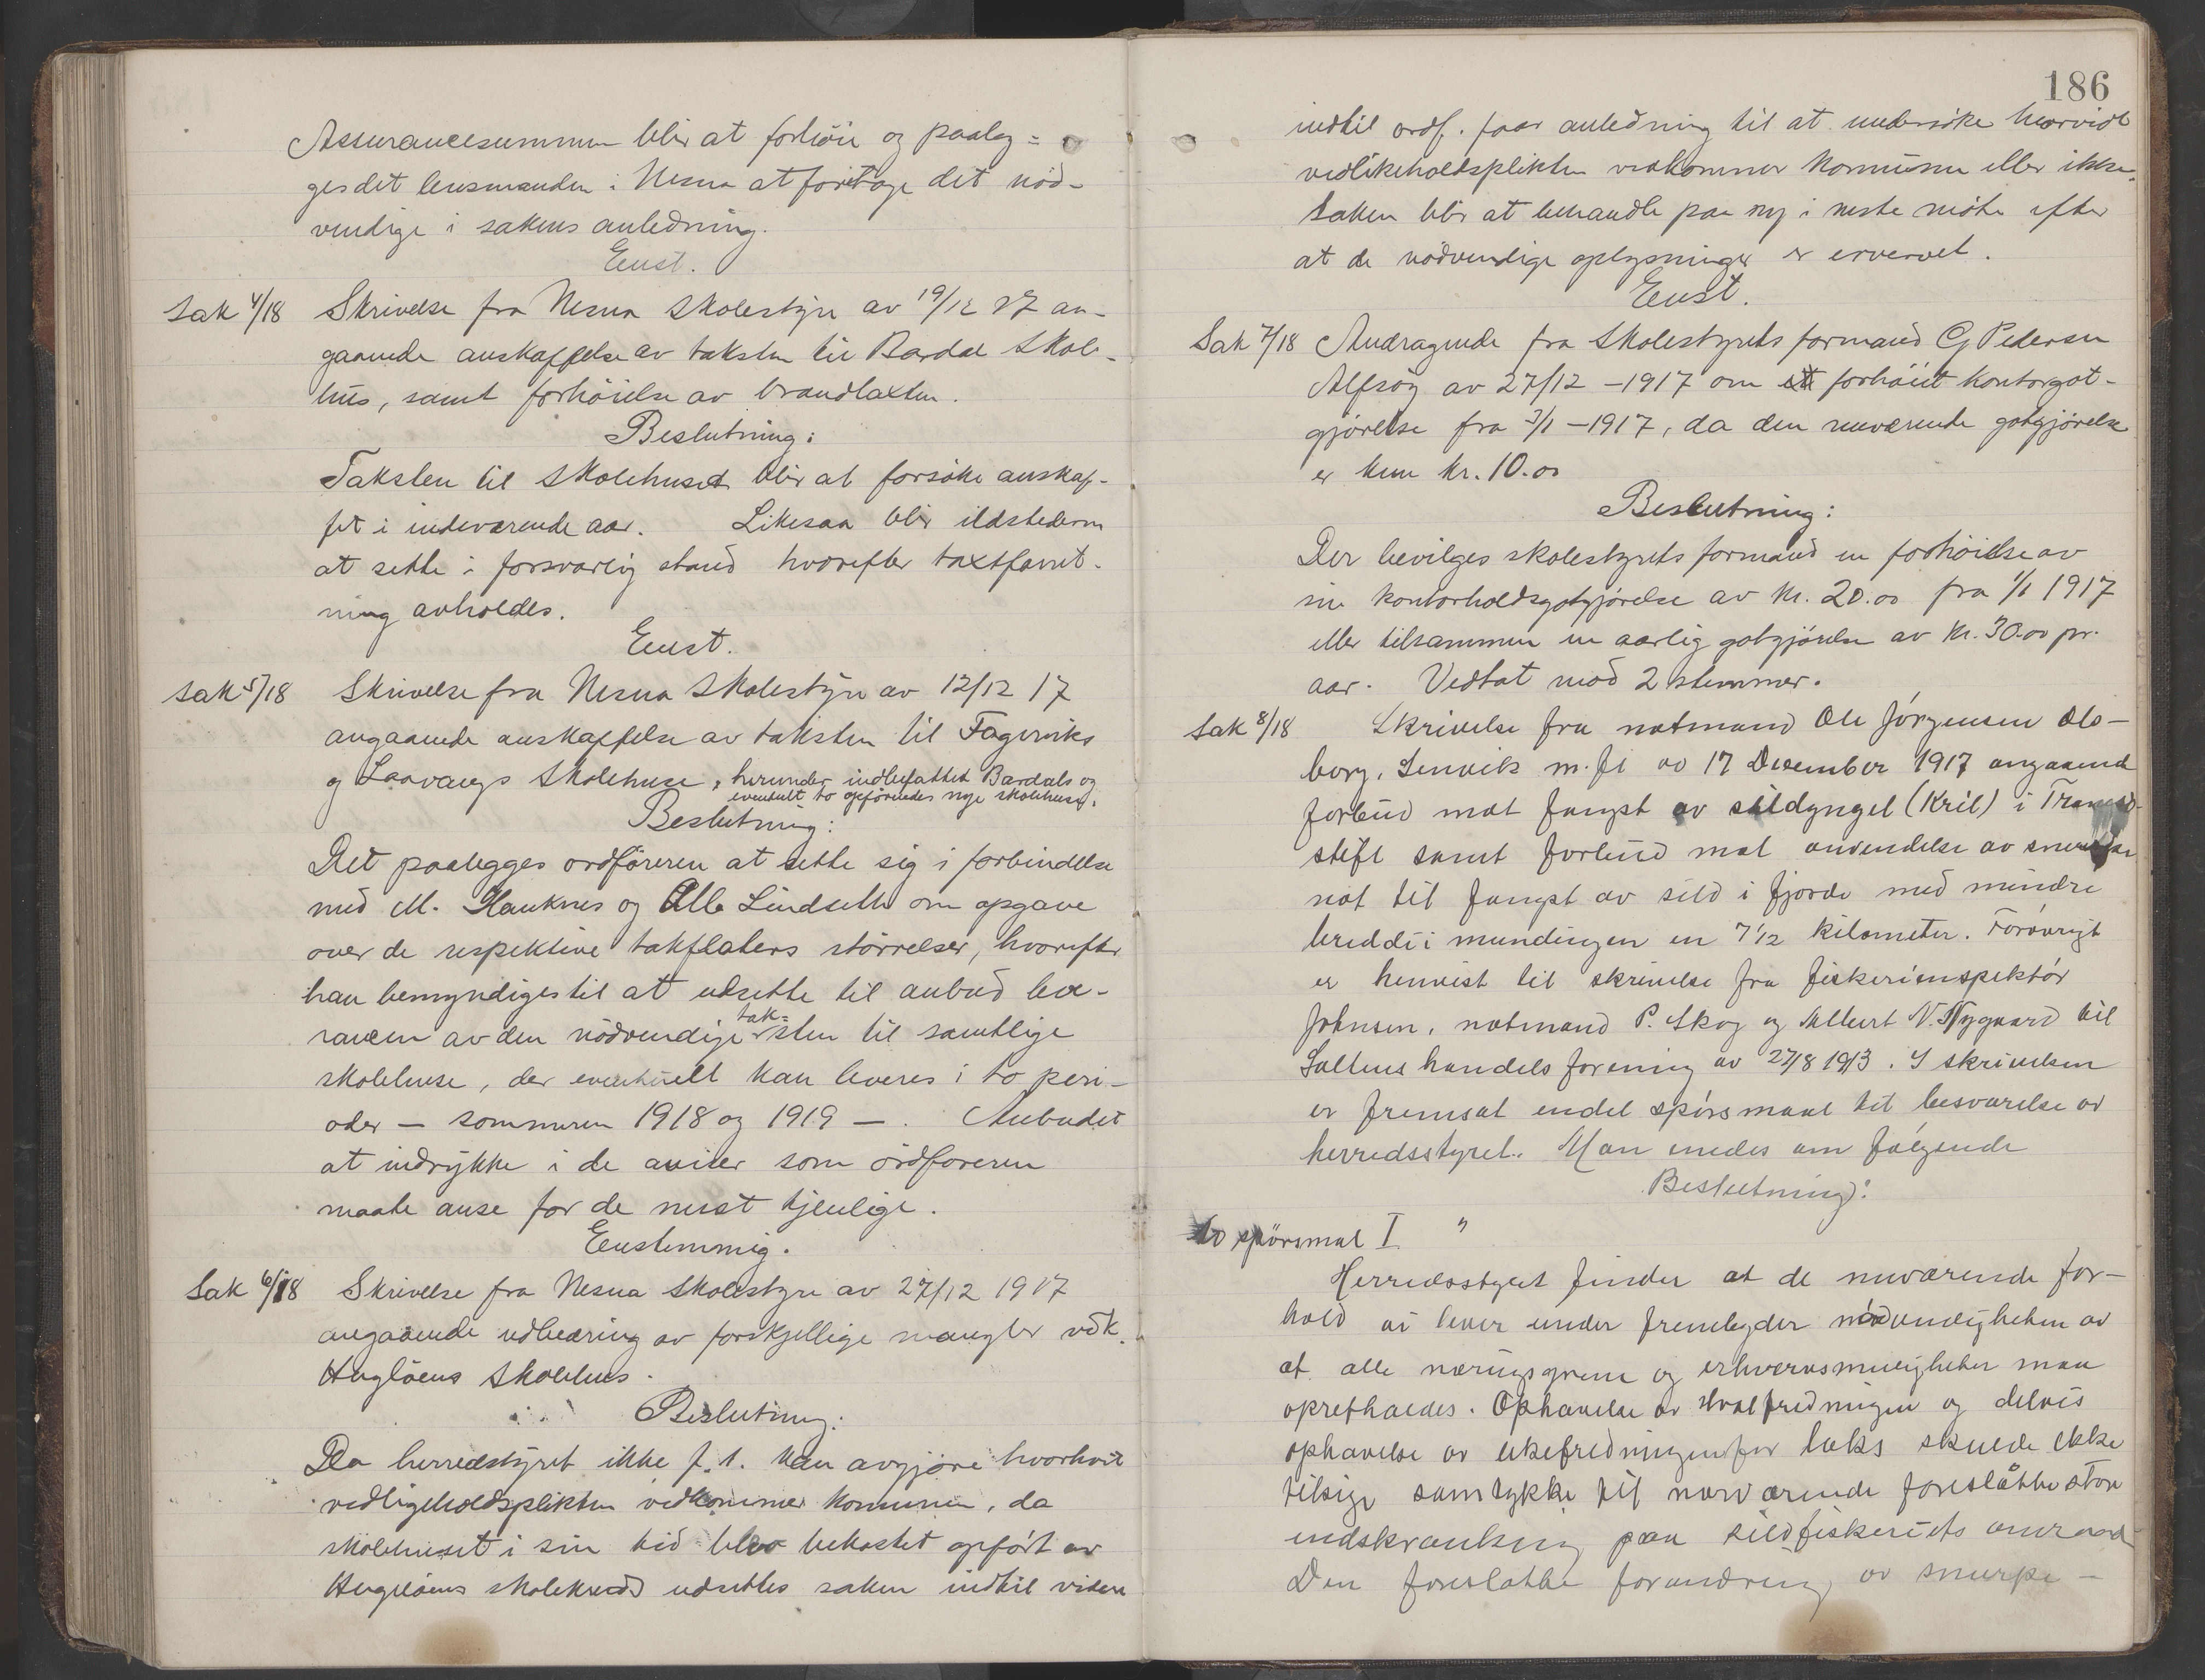 Assurancesummen blir at forhöie og paalæg=
ges det lensmanden i Nesna at foretage det nöd-
vendige i sakens anledning.
Enst.
Sak 4/18 Skrivelse fra Nesna Skolestyre av 19/12 17 an-
gaaende anskaffelse av taksten til Bardal Skole-
hus, samt forhöielse av brandtaxten.
Beslutning:
Taksten til Skolehuset blir at forsöke anskaf-
fet i indeværende aar. Likesaa blir ildstederne
at sette i forsvarlig stand hvorefter taxtforret-
ning avholdes.
Enst.
Sak 5/18 Skrivelse fra Nesna Skolestyre av 12/12 17
angaaende anskaffelse av taksten til Fagerviks
og Laavangs Skolehuse, herunder indbefattet Bardals og
eventuelt to opförendes nye skolehuse.
Beslutning:
Det paalegges ordföreren at sette sig i forbindelse
med M. Hauknes og Alb Lindseth om opgave
over de respektive takflaters störrelser, hvorefter
han bemyndiges til at utsette til anbud leve-
rancen av den nödvendige tak=
sten til samtlige
skolehuse, der eventuelt kan leveres i to peri-
oder — sommeren 1918 og 1919 —. Anbudet
at indrykke i de aviser som ordföreren
maatte anse for de mest tjenlige.
Enstemmig.
Sak 6/18 Skrivelse fra Nesna Skolestyre av 27/12 1917
angaaende udbedring av forskjellige mangler vedk.
Huglöens Skolehus.
Beslutning:
Da herredstyret ikke f. t. kan avgjöre hvorhvit
vedligeholdsplikten vedkommer kommunen, da
skolehuset i sin tid blev bekostet opfört av
Huglöens skolekreds udsettes saken indtil videre
186
indtil ordf. faar anledning til at undersöke hvorvidt
vedlikeholdsplikten vedkommer kommunen eller ikke.
Saken blir at behandle paa ny i neste möte efter
at de nödvendige oplysninger er ervervet.
Enst.
Sak 7/18 Andragende fra Skolestyrets formand G Pedersen
Alfsøy av 27/12 – 1917 om forhöiet kontorgot-
gjörelse fra 1/1 – 1917, da den nuværende gotgjörelse
er kun kr. 10.00
Beslutning:
Der bevilges skolestyrets formand en forhöielse av
sin kontorholdsgotgjörelse av kr. 20.00 fra 1/1 1917
eller tilsammen en aarlig gotgjörelse av kr. 30.00 pr.
aar. Vedtat mod 2 stemmer.
Sak 8/18 Skrivelse fra notmand Ole Jörgensen Ols-
borg, Senvik m. fl av 17 December 1917 angaaende
forbud mot fangst av sildyngel (Kril) i Tromsö
stift samt forbud mot anvendelse av snurpe
not til fangst av sild i fjorde med mindre
bredde i mundingen en 7 1/2 kilometer. Forövrigt
er henvist til skrivelse fra fiskeriinspektör
Johnsen, notmand P. Skog og Albert N. Nygaard til
Saltens handels forening av 27/8 1913. I skrivelsen
er fremsat endel spörsmaal til besvarelse av
herredsstyret. Man enedes om fölgende
Beslutning:
To spörsmal I "
Herredsstyret finder at de nuværende for-
hold vi lever under frembyder nödvendigheten av
at alle næringsgrene og erhvervsmuligheter maa
opretholdes. Ophævelse av Hvalfredningen og delvis
ophævelse av ukefredningen for laks skulde ikke
tilsige samtykke til nærværende foreslåtte store
indskrænkning paa sildfiskeriets omraade
Den foreslatte forandring av snurpe –